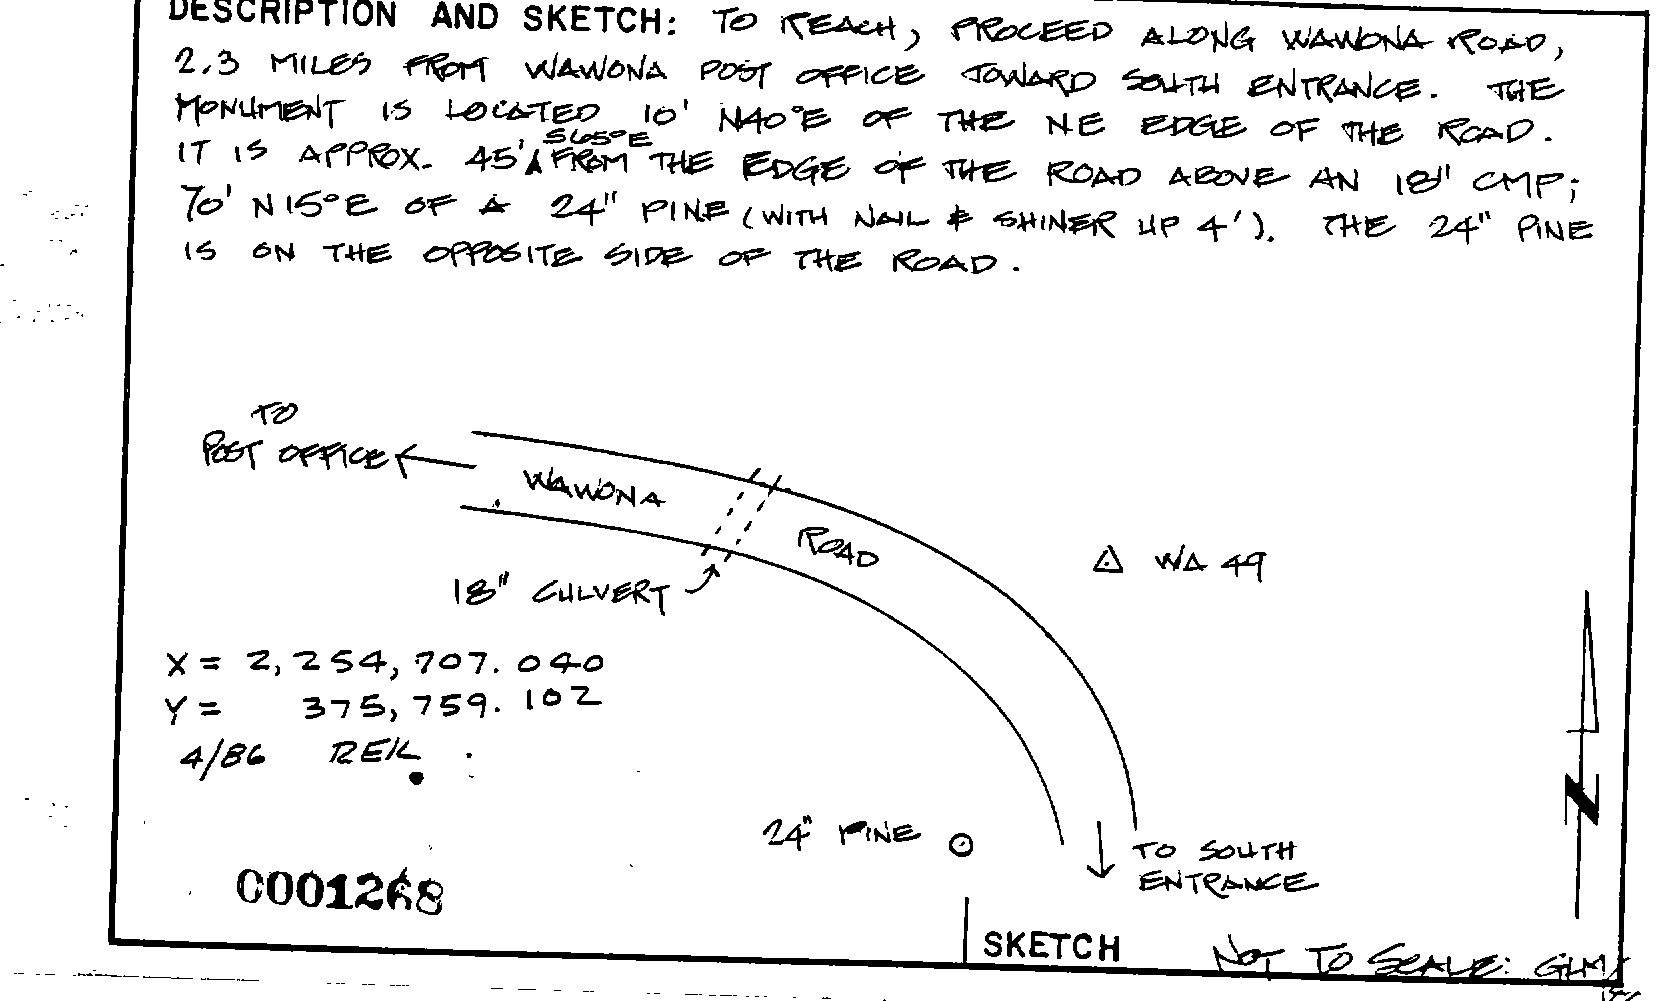 DESCRIPTION AND SKETCH: TO REACH, PROCEED ALONG WAWONA ROAD,
2.3 MILES FROM WAWONA POST OFFICE TOWARD SOUTH ENTRANCE. THE
MONUMENT IS LOCATED 10' N40°E OF THE NE EDGE OF THE ROAD.
S65°E
IT IS APPROX. 45' FROM THE EDGE OF THE ROAD ABOVE AN 18" CMP;
70' N15°E OF A 24" PINE (WITH NAIL & SHINER UP 4'). THE 24" PINE
IS ON THE OPPOSITE SIDE OF THE ROAD.
TO
POST OFFICE
WAWONA
ROAD
WA 49
18" CULVERT
X = 2,254,707.040
Y = 375,759.102
4/86 REK
N
24" PINE
TO SOUTH
ENTRANCE
C001268
SKETCH
NOT TO SCALE: GLM